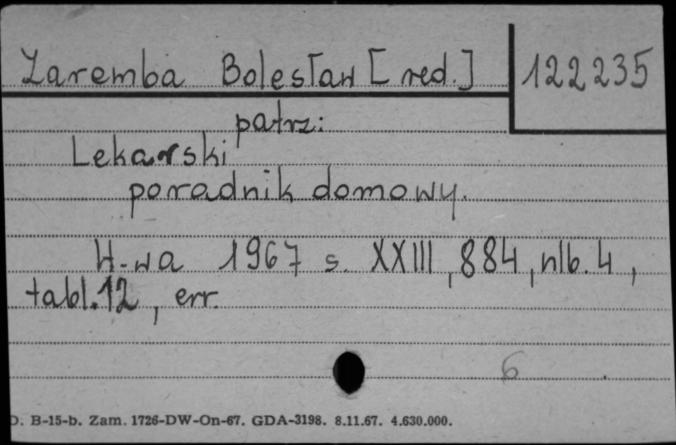 Zaremba Bolesław [red.]
122235
patrz:
Lekarski
poradnik domowy.
W-wa 1967 s. XXIII, 884, nlb. 4,
tabl. 12, err.
6
D. B-15-b. Zam. 1726-DW-On-67. GDA-3198. 8.11.67. 4.630.000.